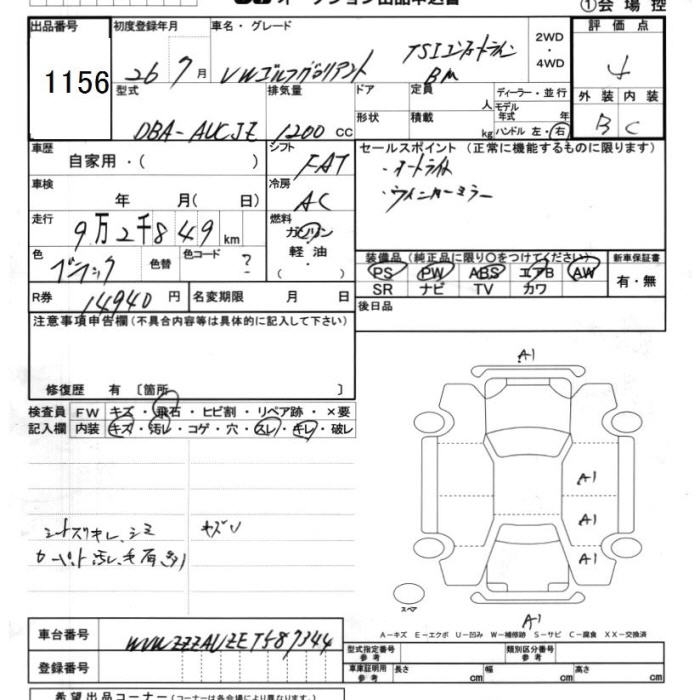 オークション出品申込書
①会場控
出品番号
1156
初度登録年月
26 7月
車名・グレード
VWゴルフヴァリアント
TSIコンフォートライン
BM
2WD
・
4WD
評価点
4
外装 内装
B C
型式
DBA-AUCJZ
排気量
1200 cc
ドア
形状
定員
人
積載
kg
ディーラー・並行
モデル
年式 年
ハンドル 左・右
車歴
自家用・( )
シフト
FAT
セールスポイント (正常に機能するものに限ります)
・オートライト
・ウィンカーミラー
車検
年 月( 日)
冷房
AC
走行
9万2千849km
燃料
ガソリン
軽油
・( )
色
ブラック
色替
色コード
?
装備品(純正品に限り○をつけてください)
PS PW ABS エアB AW
SR ナビ TV カワ
新車保証書
有・無
R券
14940円
名変期限 月 日
後日品
注意事項申告欄(不具合内容等は具体的に記入して下さい)
修復歴 有 〔箇所 〕
検査員
記入欄
FW キズ・飛石・ヒビ割・リペア跡・×要
内装 キズ・汚レ・コゲ・穴・スレ・キレ・破レ
シートズリキレ、シミ
カーペット汚レ、毛有多リ
キズU
A1
A1
A1
A1
A1
スペア
A-キズ E-エクボ U-凹み W-補修跡 S-サビ C-腐食 XX-交換済
車台番号
WVWZZZAUZET587344
登録番号
型式指定番号
参考
類別区分番号
参考
車庫証明用
参考
長さ cm
幅 cm
高さ cm
希望出品コーナー(コーナーは各会場により異なります)